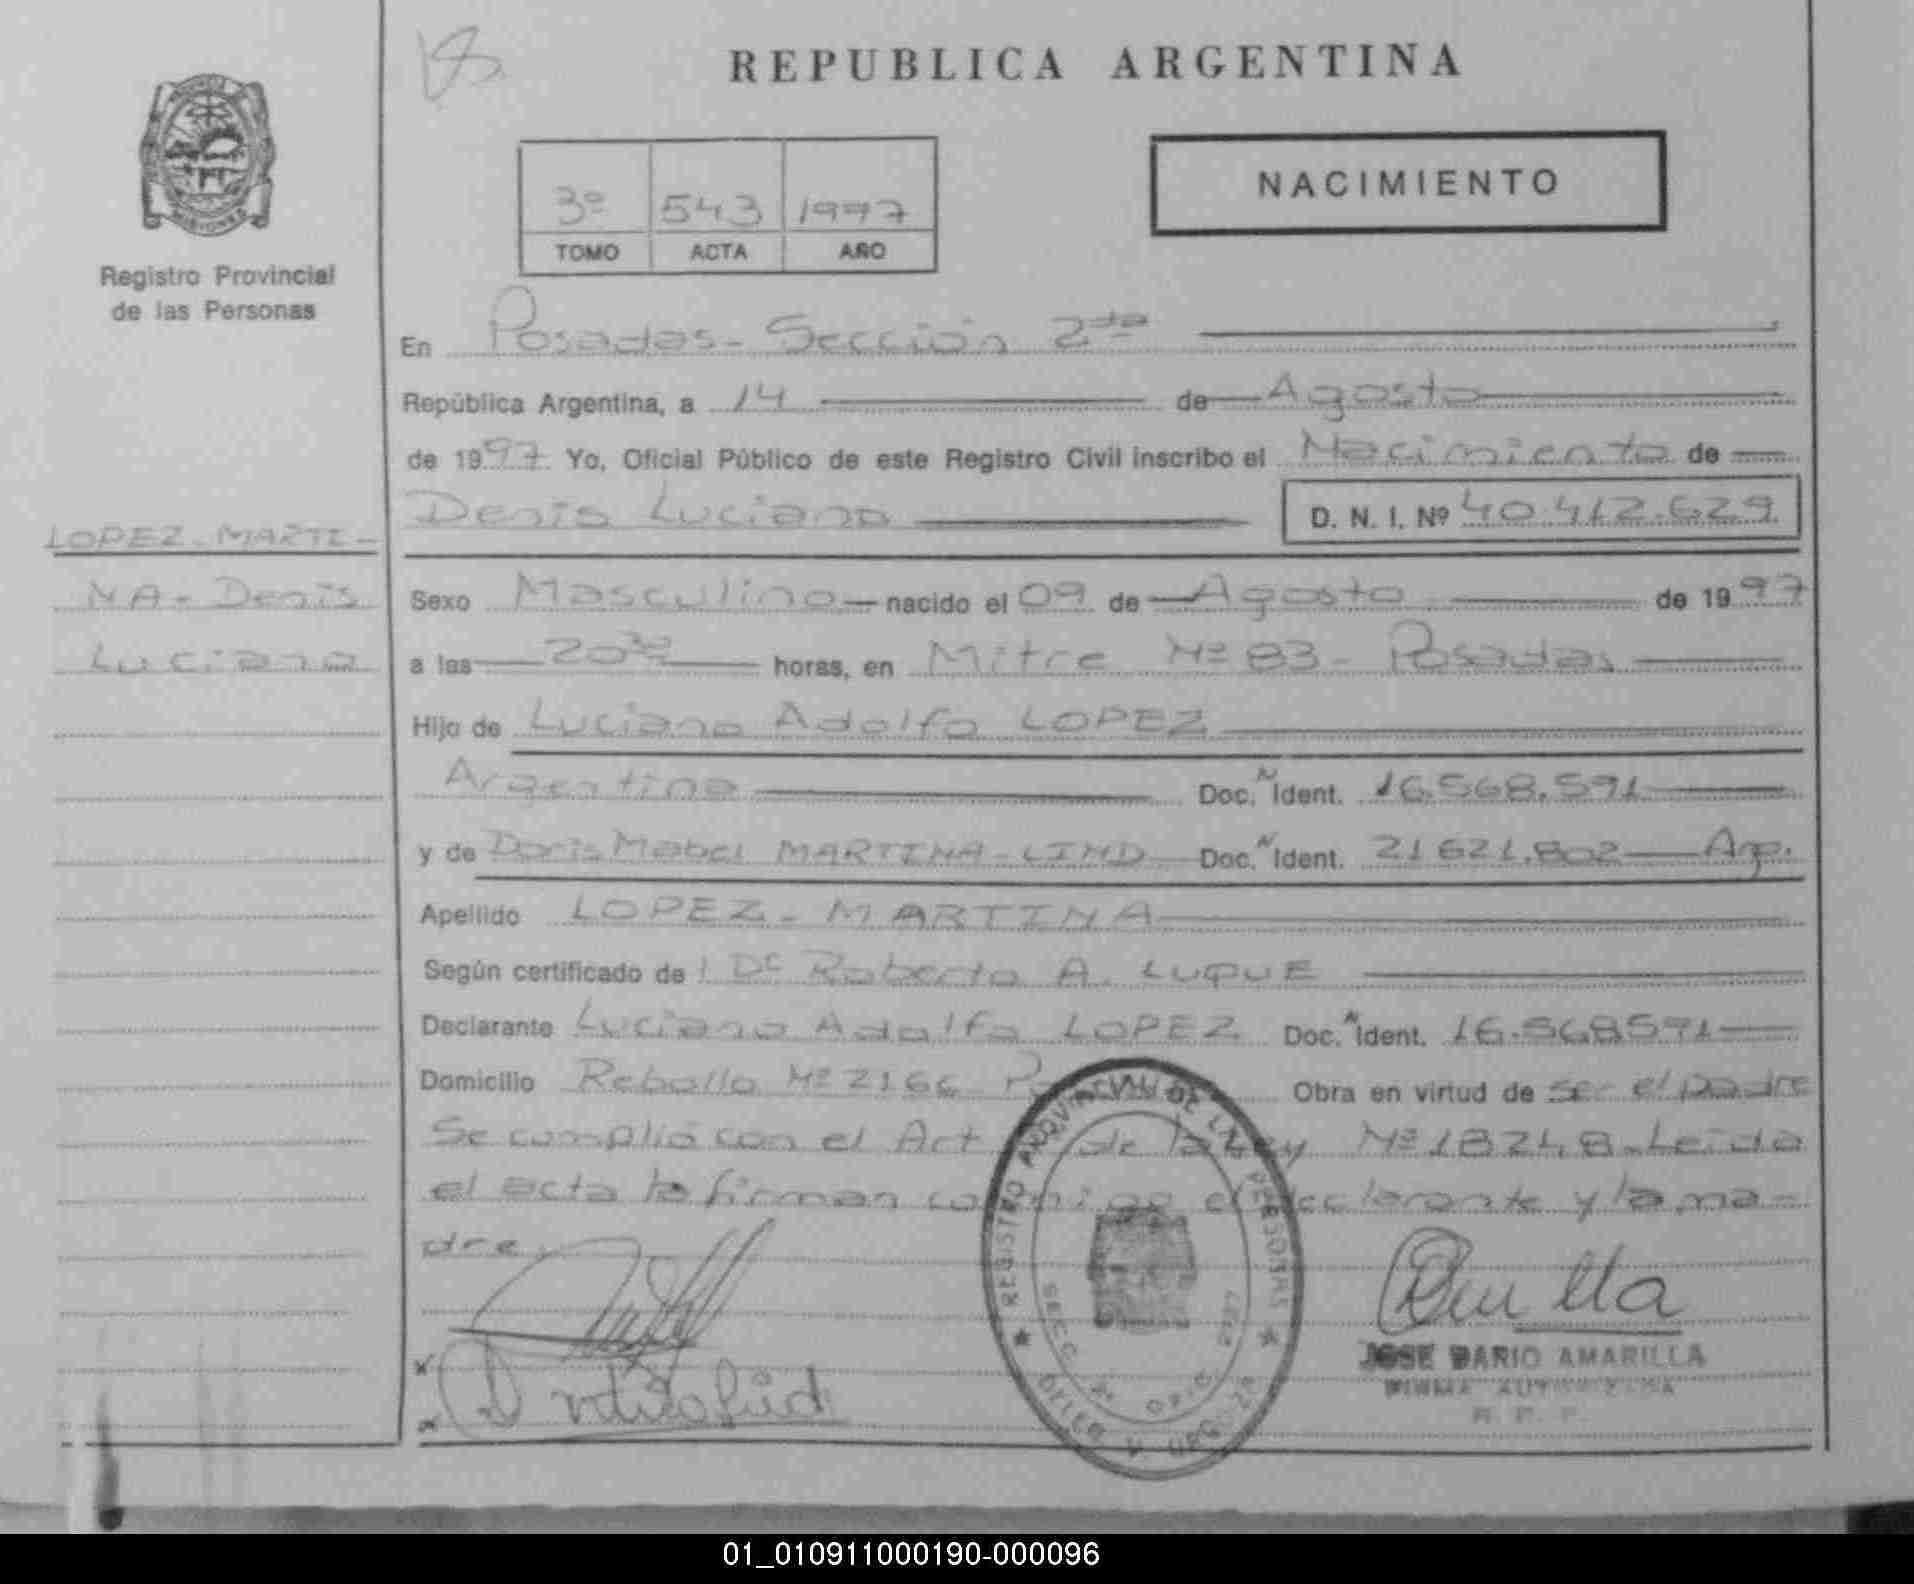 REPUBLICA ARGENTINA
NACIMIENTO
3º 543 1997
TOMO ACTA AÑO
Registro Provincial
de las Personas
LOPEZ-MARTI-
NA-Denis
Luciano
En Posadas-Sección 2da
República Argentina, a 14 de Agosto
de 1997 Yo, Oficial Público de este Registro Civil inscribo el Nacimiento de
Denis Luciano D. N. I. Nº 40.412.629
Sexo Masculino nacido el 09 de Agosto de 1997
a las 20 30 horas, en Mitre Nº 83-Posadas
Hijo de Luciano Adolfo LOPEZ
Argentino Doc. N Ident. 16.568.591
y de Doris Mabel MARTINA-LIND Doc. N Ident. 21.621.802 Arg.
Apellido LOPEZ-MARTINA
Según certificado de l Dr Roberto A. LUQUE
Declarante Luciano Adolfo LOPEZ Doc. N Ident. 16.568591
Domicilio Rebollo Nº 2166 Obra en virtud de ser el padre
Se cumplió con el Art de la Ley Nº 18248-Leída
el acta la firman conmigo el declarante y la ma-
dre
REGISTRO PROVINCIAL DE LAS PERSONAS
JOSE DARIO AMARILLA
FIRMA AUTORIZADA
R. P. P.
01_010911000190-000096